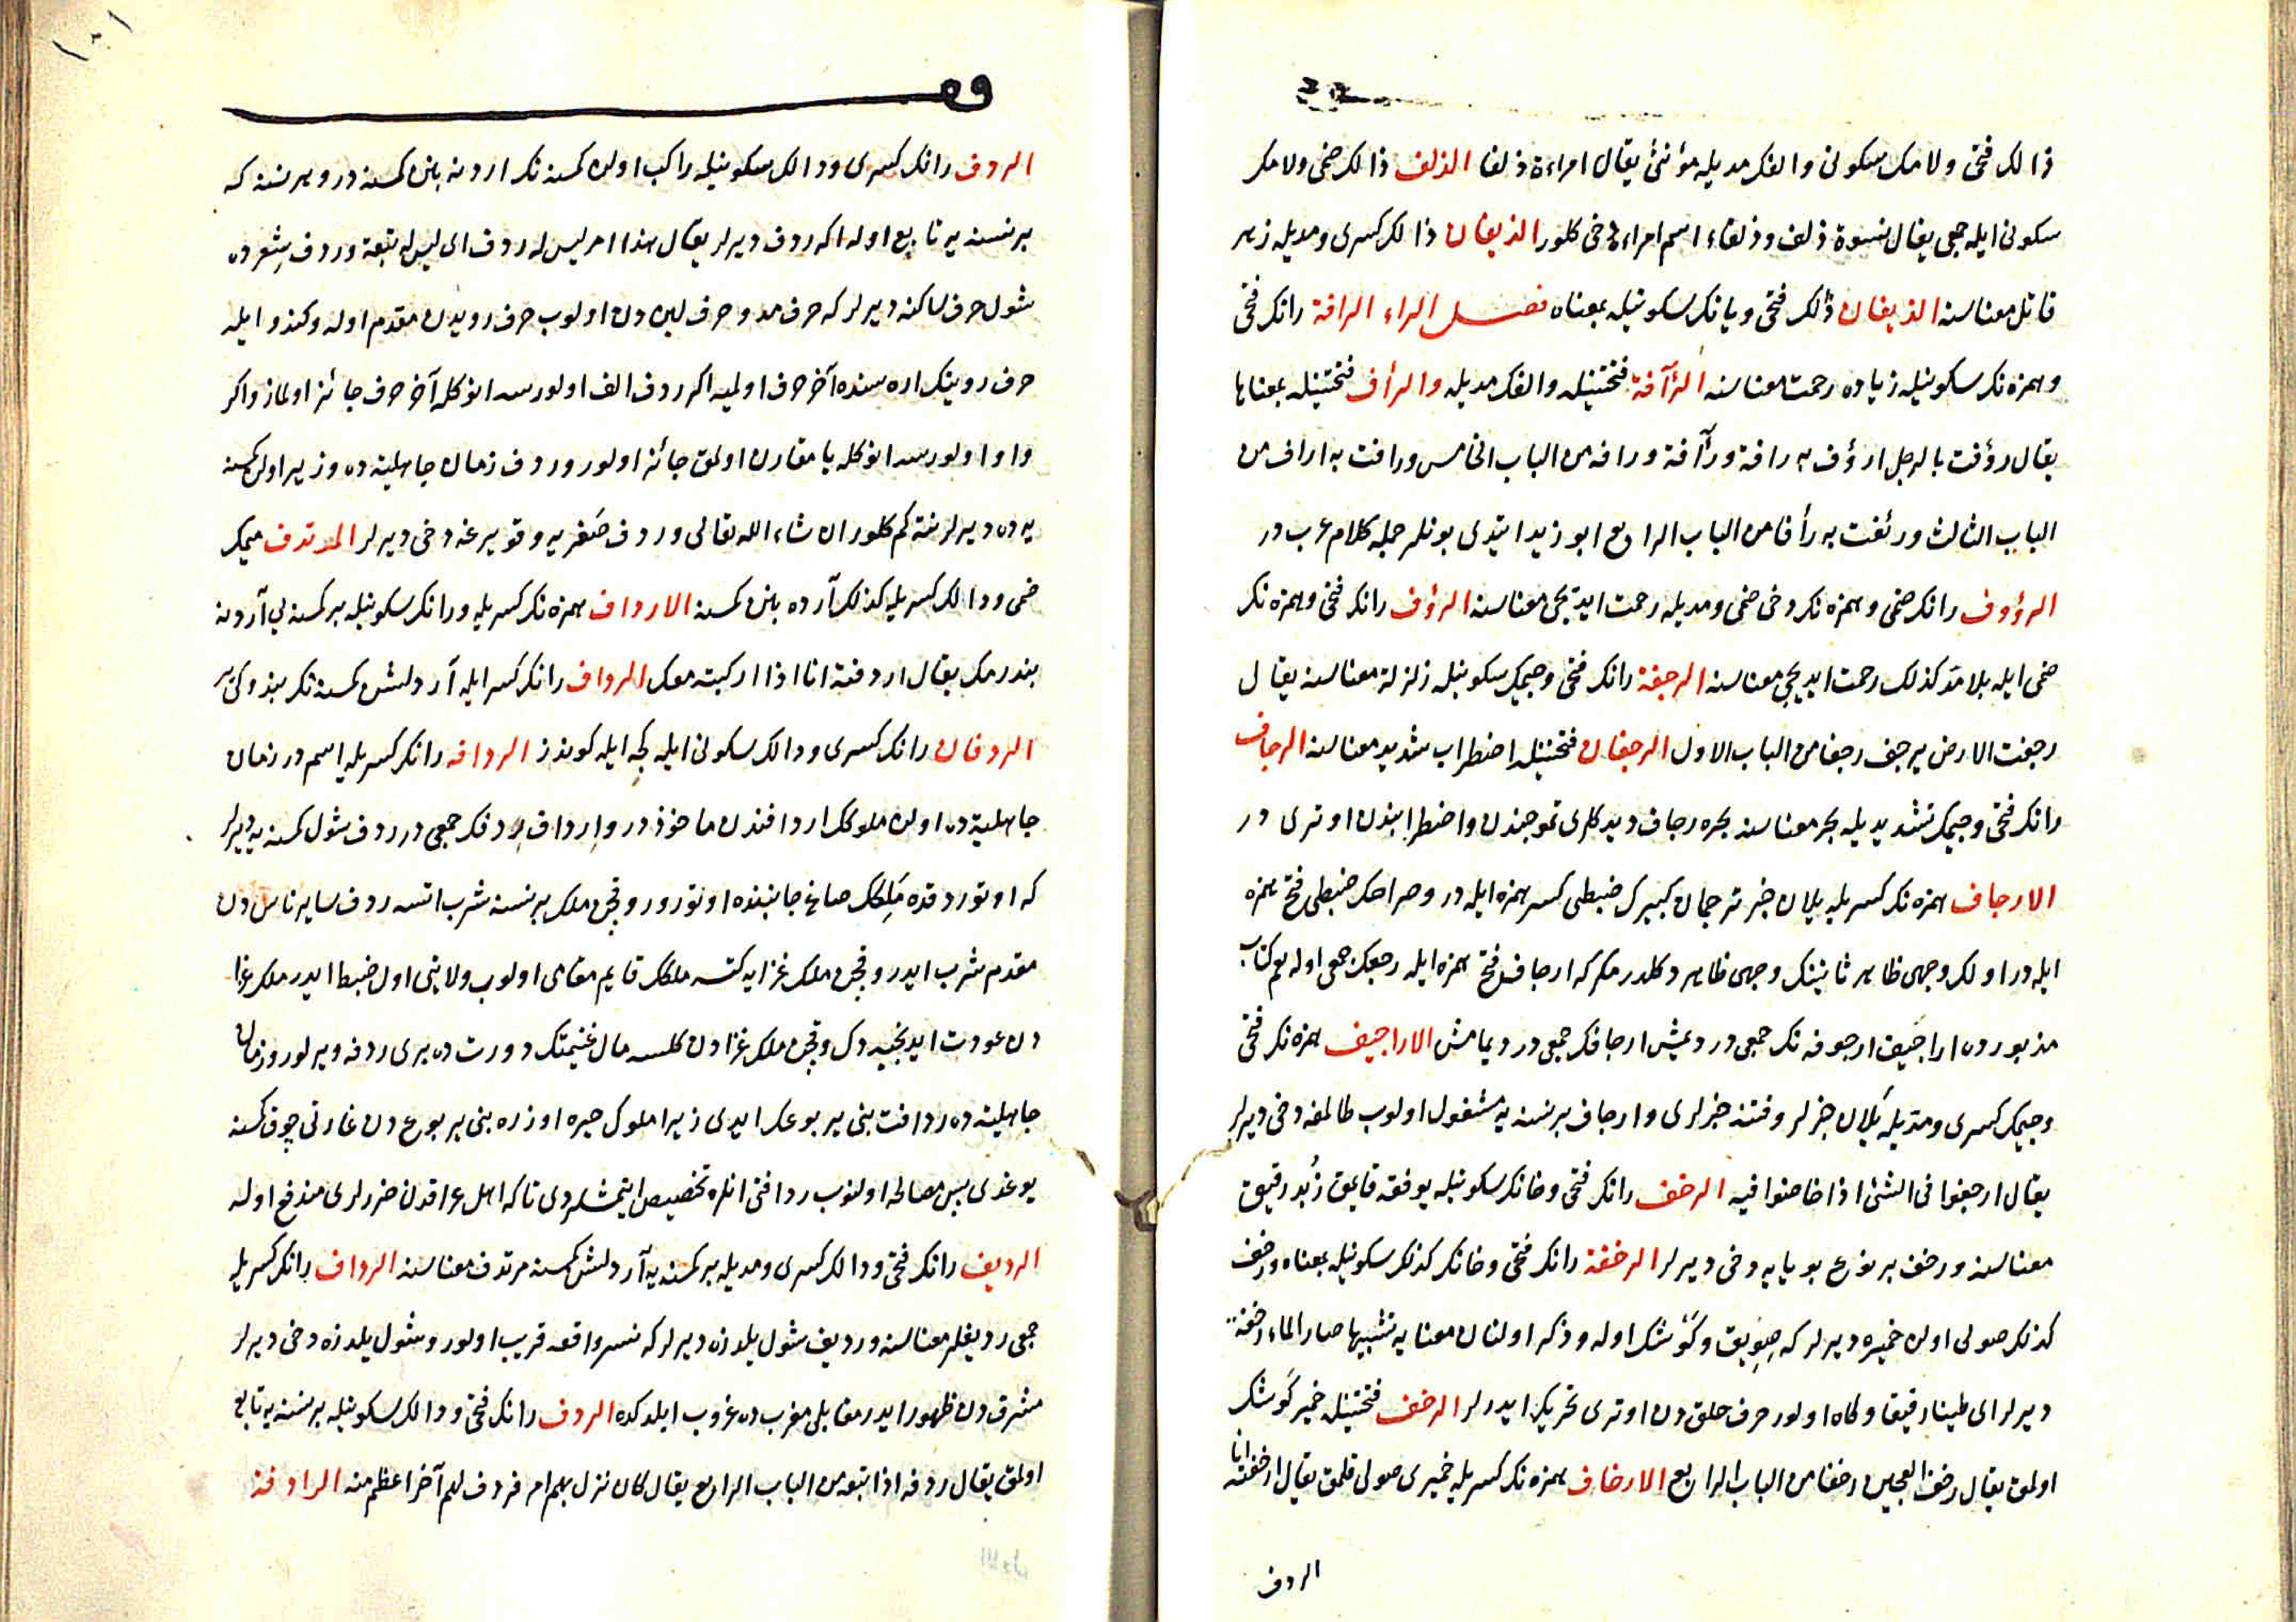 ذالك فتحى ولامك سكونى والفك مديله مؤنثى يقال امراءة ذلفا الذلف ذالك ضمى ولامك
سكونى ايله جمعى يقال نسوة ذلف وذلفاء اسم امراءة دخى كلور الذيفان ذالك كسرى ومديله زهر
قاتل معناسنه الذيفان ذالك فتحى ويانك سكونيله بمعناه فصل الراء الرافة رانك فتحى
وهمزه نك سكونيله زياده رحمت معناسنه الرآفة فتحتيله والفك مديله والرأف فتحتيله بمعناها
يقال رؤفت بالرجل ارؤف به رافة ورآفة ورافه من الباب الخامس ورافت به اراف من
الباب الثالث ورئفت به رأفا من الباب الرابع ابو زيد ايتدى بونلر جمله كلام عرب در
الرؤوف رانك ضمى وهمزه نك دخى ضمى ومديله رحمت ايديجى معناسنه الرؤف رانك فتحى وهمزه نك
ضمى ايله بلا مد كذلك رحمت ايديجى معناسنه الرجفة رانك فتحى وجيمك سكونيله زلزلة معناسنه يقال
رجفت الارض يرجف رجفا من الباب الاول الرجفان فتحتيله اضطراب شديد معناسنه الرجاف
رانك فتحى وجيمك تشديديله بحر معناسنه بحره رجاف ديدكلرى تموجندن واضطرابندن اوترى در
الارجاف همزه نك كسريله يلان خبر ترجمان كبيرك ضبطى كسر همزه ايله در وصراحك ضبطى فتح همزه
ايله در اولك وجهى ظاهر ثانينك وجهى ظاهر دكلدر مكر كه ارجاف فتح همزه ايله رجفك جمعى اوله بو كتاب
مذبورده اراجيف ارجوفه نك جمعى در ديمش ارجافك جمعى در ديمامش الاراجيف همزه نك فتحى
وجيمك كسرى ومديله يلان خبرلر وفتنه خبرلرى وارجاف برنسنه يه مشغول اولوب طالمغه دخى ديرلر
يقال ارجفوا فى الشئ اذا خاضوا فيه الرخف رانك فتحى وخانك سكونيله يوفقه قايمق زبد رقيق
معناسنه ورخف بر نوع بويايه دخى ديرلر الرخفة رانك فتحى وخانك كذلك سكونيله بمعناه ورخف
كذلك صولى اولان خميره ديرلر كه جيويق وكوشك اوله وذكر اولنان معنايه تشبيها صار الماء رخفة
ديرلر اى طينا رقيقا وكاه اولور حرف حلق دن اوترى تحريك ايدرلر الرخف فتحتيله خمير كوشك
اولمق يقال رخف العجين رخفا من الباب الرابع الارخاف همزه نك كسريله خميرى صولى قلمق يقال ارخفته انا
الردف
الردف رانك كسرى ودالك سكونيله راكب اولان كمسنه نك اردنه بنن كمسنه در وبرنسنه كه
برنسنه يه تابع اوله اكه ردف ديرلر يقال هذا امر ليس له ردف اى ليس له تبعة وردف شعرده
شول حرف ساكنه ديرلر كه حرف مد وحرف ليندن اولوب حرف رويدن مقدم اوله وكندو ايله
حرف روينك اره سنده آخر حرف اولميه اكر ردف الف اولورسه انوكله آخر حرف جائز اولماز واكر
واو اولورسه انوكله يا مقارن اولمق جائز اولور وردف زمان جاهليته ده وزير اولان كمسنه
يه ده ديرلر نته كم كلور ان شاء الله تعالى وردف صغريه وقويرغه دخى ديرلر المرتدف ميمك
ضمى ودالك كسريله كذلك آرده بنن كمسنه الارداف همزه نك كسريله ورانك سكونيله بر كمسنه يى آردنه
بندرمك يقال اردفته انا اذا اركبته معك الرداف رانك كسر ايله آردلشن كمسنه نك بندوكى ير
الردفان رانك كسرى ودالك سكونى ايله كجه ايله كوندز الردافه رانك كسريله اسم در زمان
جاهليته ده اولان ملوكك اردافندن ماخوذ در وارداف ردفك جمعى در ردف شول كمسنه يه ديرلر
كه اوتوردقده ملكك صاغ جانبنده اوتورور وقچن ملك برنسنه شرب اتسه ردف ساير ناس دن
مقدم شرب ايدر وقچن ملك غزايه كتسه ملكك قايم مقامى اولوب ولايتى اول ضبط ايدر ملك غزا
دن عودت ايدنجيه دك وقچن ملك غزادن كلسه مال غنيمتك دورت ده برى ردفه ويرلور وزمان
جاهليته ده ردافت بنى يربوعك ايدى زيرا ملوك حيره اوزره بنى يربوع دن غارتى چوق كمسنه
يوغدى پس مصالحه اولنوب ردافتى انلره تخصيص ايتمشلردى تاكه اهل عراقدن ضررلرى مندفع اوله
الرديف رانك فتحى ودالك كسرى ومديله بر كمسنه يه آردلشن كمسنه مرتدف معناسنه الرداف رانك كسريله
جمعى رديفلر معناسنه ورديف شول يلدزه ديرلر كه نسر واقعه قريب اولور وشول يلدزه دخى ديرلر
مشرق دن ظهور ايدر مقابلى مغرب ده غروب ايلدكده الردف رانك فتحى ودالك سكونيله برنسنه يه تابع
اولمق يقال ردفه اذا تبعه من الباب الرابع يقال كان نزل بهم امر فردف لهم آخر اعظم منه الرادفة